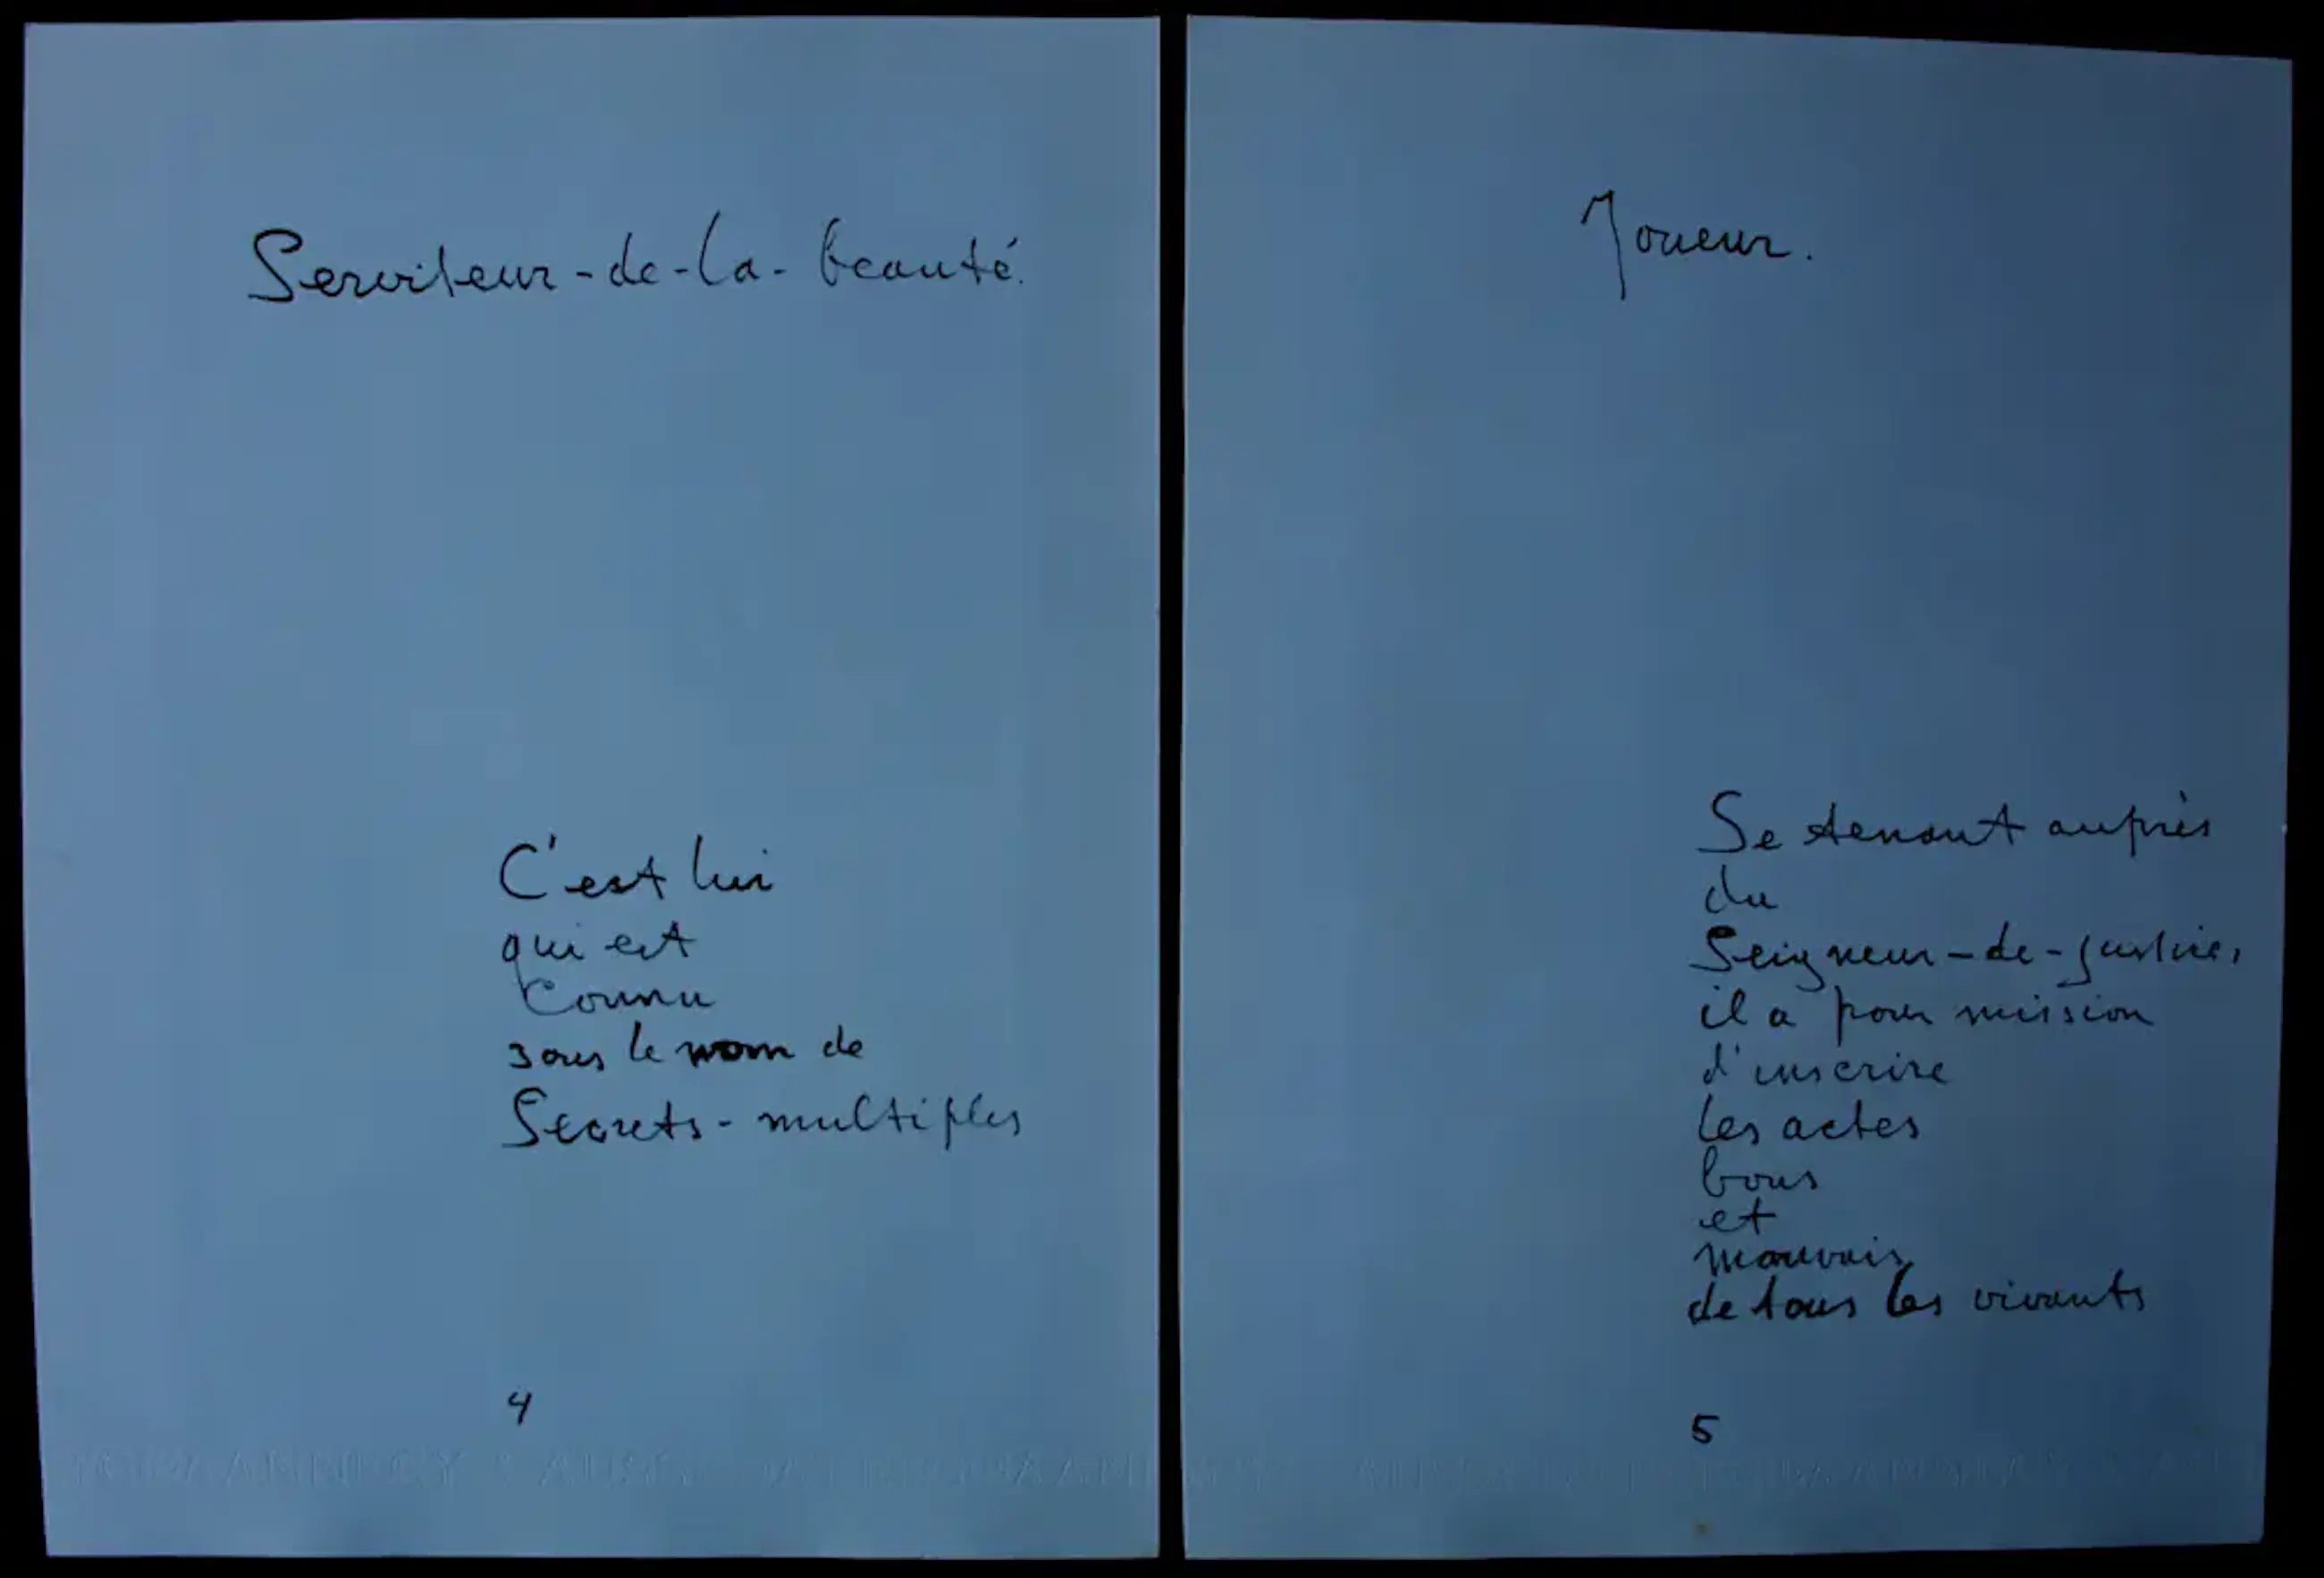 Serviteur-de-la-beauté.
C'est lui
qui est
Connu
sous le nom de
Secrets-multiples
4
Joueur.
Se tenant auprès
du
Seigneur-de-justice,
il a pour mission
d'inscrire
les actes
bons
et
mauvais
de tous les vivants
5